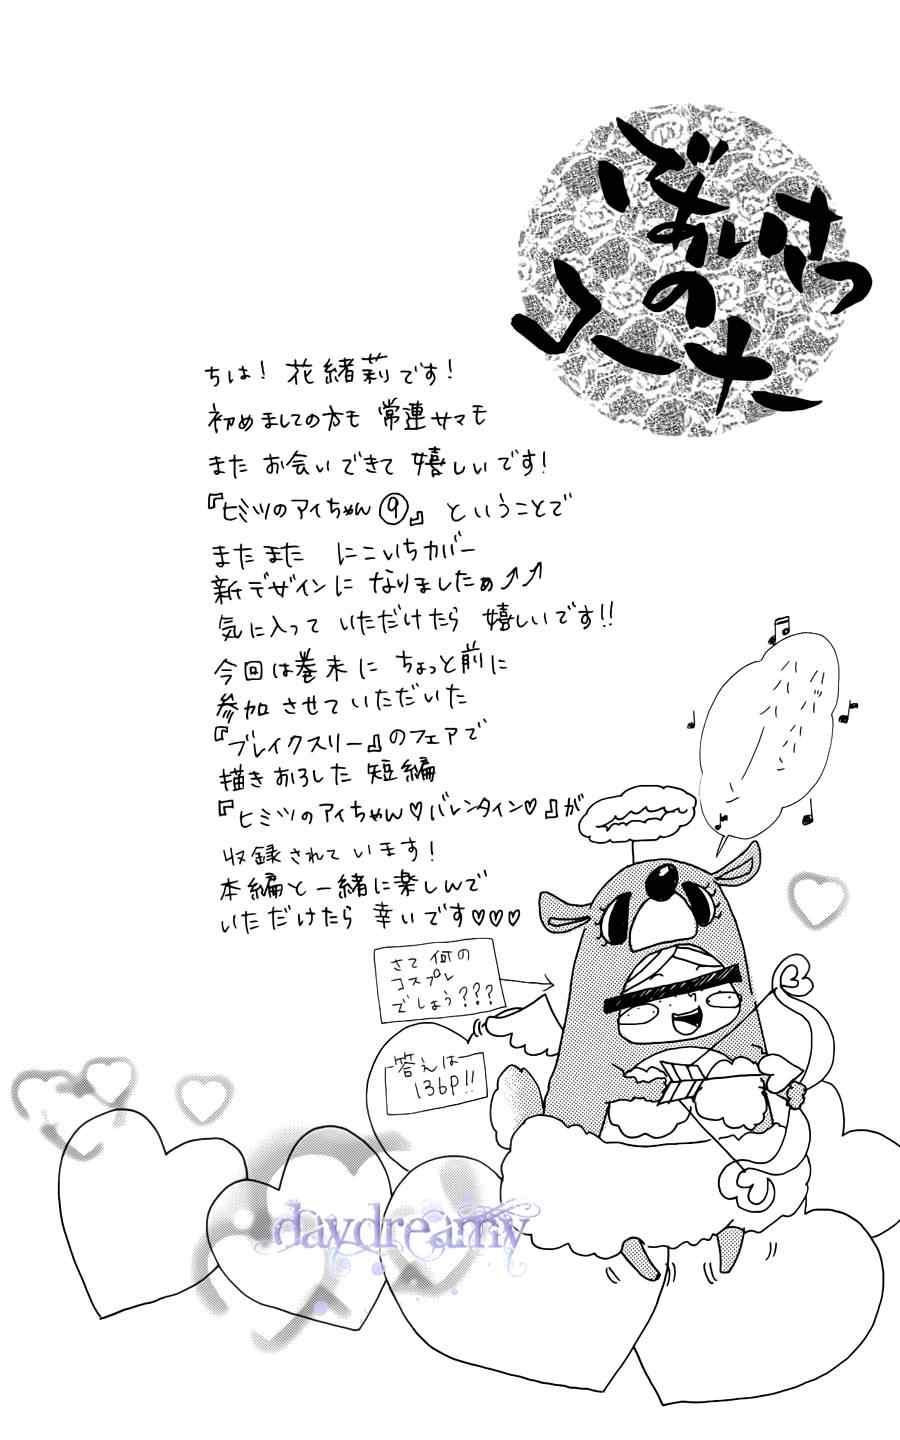 ごあいさつ
の
コーナー
ちは! 花緒莉です!
初めましての方も 常連サマも
また お会いできて 嬉しいです!
『ヒミツのアイちゃん⑨』 ということで
またまた にこいちカバー
新デザインに なりましたぁ⤴⤴
気に入って いただけたら 嬉しいです!!
今回は巻末に ちょっと前に
参加させていただいた
『ブレイクスリー』のフェアで
描きおろした 短編
『ヒミツのアイちゃん♡バレンタイン♡』が
収録されています!
本編と一緒に楽しんで
いただけたら 幸いです♡♡♡
さて何の
コスプレ
でしょう???
答えは
136P!!
daydreamy